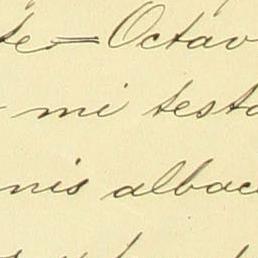 te=Octav
mi testa
nis albac